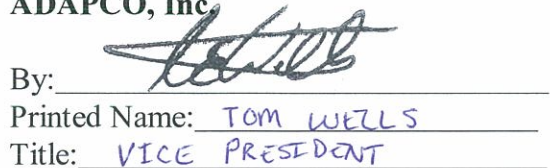 ADAPCO, Inc.
By:
Printed Name: TOM WELLS
Title: VICE PRESIDENT